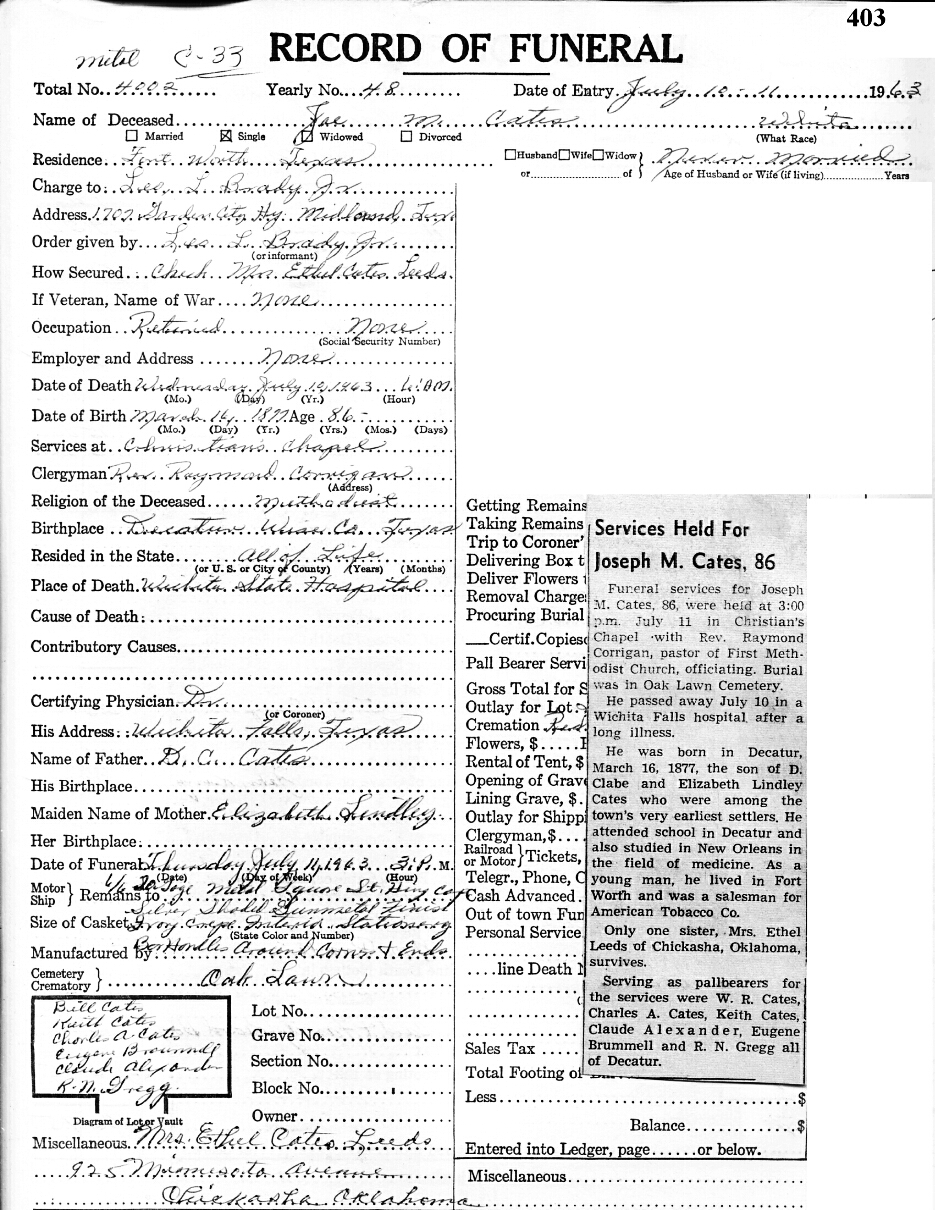 403
metal C-33
RECORD OF FUNERAL
Total No. 4002 Yearly No. 48 Date of Entry July 10-11 1963
Name of Deceased Joe M. Cates White
Married Single Widowed Divorced (What Race)
Residence Fort Worth Texas Husband Wife Widow Never Married
or of Age of Husband or Wife (if living) Years
Charge to: Les L. Brady Jr.
Address 1702 Garden City Hy. Midland, Tex
Order given by Les L. Brady Jr.
(or informant)
How Secured Check Mrs. Ethel Cates Leeds
If Veteran, Name of War None
Occupation Retired None
(Social Security Number)
Employer and Address None
Date of Death Wednesday July 10, 1963
(Mo.) (Day) (Yr.) (Hour)
Date of Birth March 16, 1877 Age 86-
(Mo.) (Day) (Yr.) (Yrs.) (Mos.) (Days)
Services at Christian's Chapel
Clergyman Rev. Raymond Corrigan
(Address)
Religion of the Deceased Methodist
Birthplace Decatur Wise Co. Texas
Resided in the State All of Life
(or U. S. or City of County) (Years) (Months)
Place of Death Wichita State Hospital
Cause of Death:
Contributory Causes
Certifying Physician Dr.
(or Coroner)
His Address: Wichita Falls, Texas
Name of Father D. C. Cates
His Birthplace
Maiden Name of Mother Elizabeth Lindley
Her Birthplace:
Date of Funeral Thursday July 11, 1963 3: P. M.
(Date) (Day of Week) (Hour)
Motor Ship Remains to 20 Gage Metal Square
Silver Gunmetal Finish
Size of Casket Ivory Crepe Interior Stationary
(State Color and Number)
Manufactured by Bar Handles Around Corners & Ends
Cemetery Crematory Oak Lawn
Bill Cates
Keith Cates
Charles A Cates
Eugene Brummell
Claude Alexander
R. N. Gregg
Diagram of Lot or Vault
Lot No.
Grave No.
Section No.
Block No.
Owner
Miscellaneous Mrs. Ethel Cates Leeds
925 Minnesota Avenue
Chickasha Oklahoma
Getting Remains
Taking Remains
Trip to Coroner'
Delivering Box t
Deliver Flowers
Removal Charge
Procuring Burial
Certif. Copies
Pall Bearer Servi
Gross Total for S
Outlay for Lot
Cremation
Flowers, $
Rental of Tent, $
Opening of Grave
Lining Grave, $
Outlay for Shipp
Clergyman, $
Railroad or Motor Tickets,
Telegr., Phone, C
Cash Advanced
Out of town Fun
Personal Service
line Death N
Sales Tax
Total Footing of
Less $
Balance $
Entered into Ledger, page or below.
Miscellaneous
Services Held For
Joseph M. Cates, 86
Funeral services for Joseph
M. Cates, 86, were held at 3:00
p.m. July 11 in Christian's
Chapel with Rev. Raymond
Corrigan, pastor of First Meth-
odist Church, officiating. Burial
was in Oak Lawn Cemetery.
He passed away July 10 in a
Wichita Falls hospital after a
long illness.
He was born in Decatur,
March 16, 1877, the son of D.
Clabe and Elizabeth Lindley
Cates who were among the
town's very earliest settlers. He
attended school in Decatur and
also studied in New Orleans in
the field of medicine. As a
young man, he lived in Fort
Worth and was a salesman for
American Tobacco Co.
Only one sister, Mrs. Ethel
Leeds of Chickasha, Oklahoma,
survives.
Serving as pallbearers for
the services were W. R. Cates,
Charles A. Cates, Keith Cates,
Claude Alexander, Eugene
Brummell and R. N. Gregg all
of Decatur.